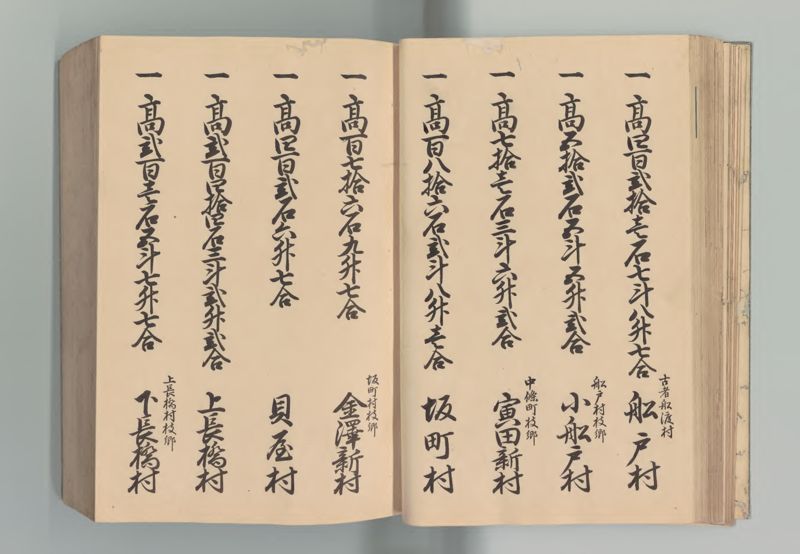 一 高四百弐拾壱石七斗八升七合 古者船渡村 船戸村
一 高五拾弐石五斗五升弐合 船戸村枝郷 小船戸村
一 高七拾壱石三斗六升弐合 中條町枝郷 寅田新村
一 高百八拾六石弐斗八升壱合 坂町村
一 高百七拾六石九升七合 坂町村枝郷 金澤新村
一 高四百弐石六升七合 貝屋村
一 高弐百四拾四石三斗弐升弐合 上長橋村
一 高弐百壱石五斗七升七合 上長橋村枝郷 下長橋村